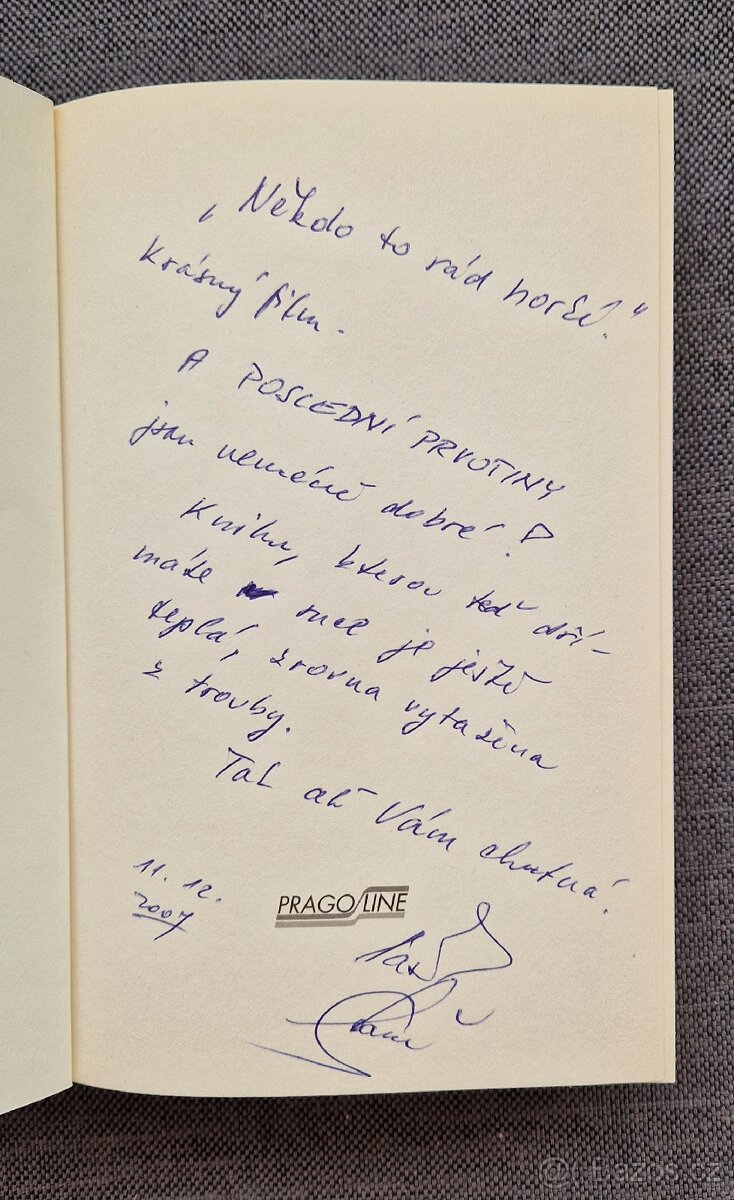 „Někdo to rád horší."
Krásný film.
A POSLEDNÍ PRVOTINY
jsou neméně dobré!
Knihu, kterou teď drží-
máte v ruce je ještě
teplá, zrovna vytažena
z trouby.
Tak ať Vám chutná.
11. 12.
2007
PRAGOLINE
Bazos.cz